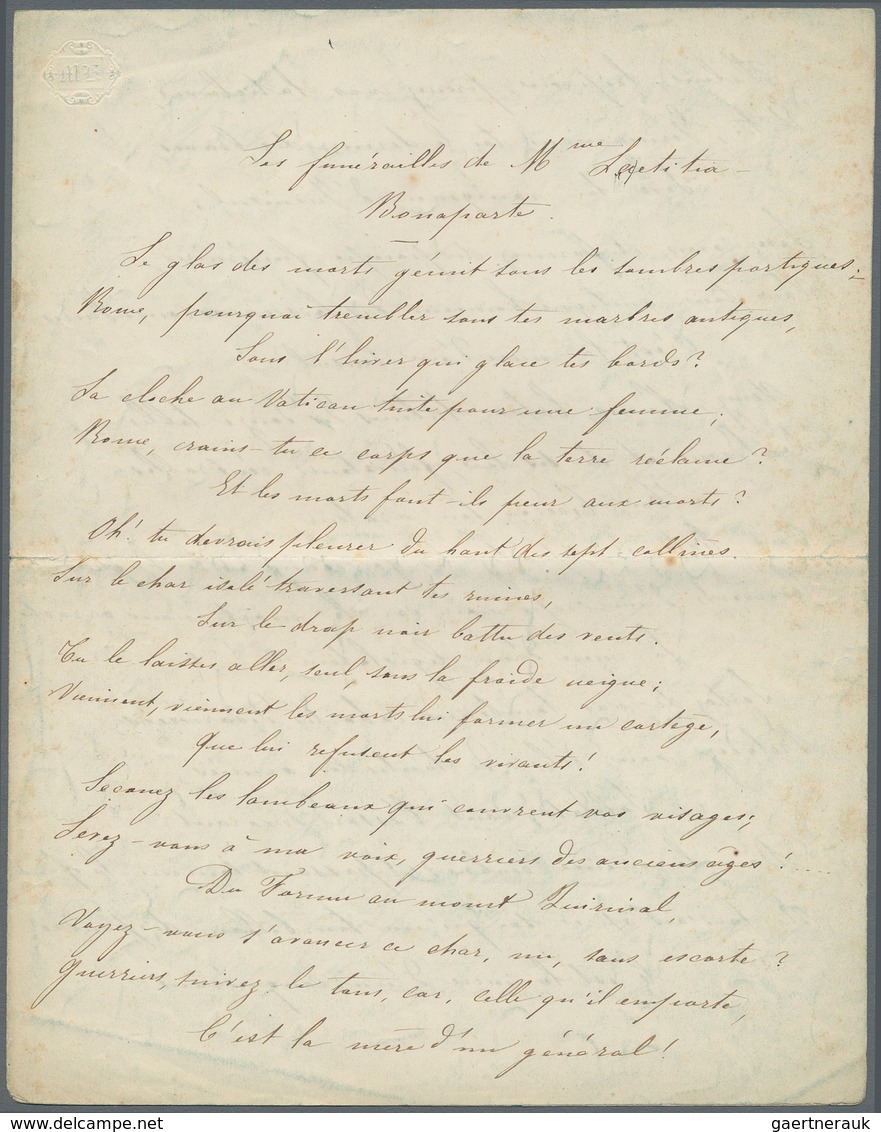 Les funérailles de Mme Laetitia -
Bonaparte.
Le glas des morts gémit sous les sombres portiques;
Rome, pourquoi trembler sous tes marbres antiques,
Sous l'hiver qui glace tes bords?
La cloche au Vatican tinte pour une femme;
Rome, crains-tu ce corps que la terre réclame?
Et les morts font-ils peur aux morts?
Oh! tu devrais pleurer du haut des sept collines.
Sur le char isolé traversant tes ruines,
Sur le drap noir battu des vents.
Tu le laisses aller, seul, sous la froide neige;
Viennent, viennent les morts lui former un cortège,
Que lui refusent les vivants!
Secouez les lambeaux qui couvrent vos visages;
Levez-vous à ma voix, guerriers des anciens âges!....
Du Forum au mont Quirinal,
Voyez-vous s'avancer ce char, nu, sans escorte?
Guerriers, suivez-le tous, car, celle qu'il emporte,
C'est la mère d'un général!
delcampe.net
gaertnerauk